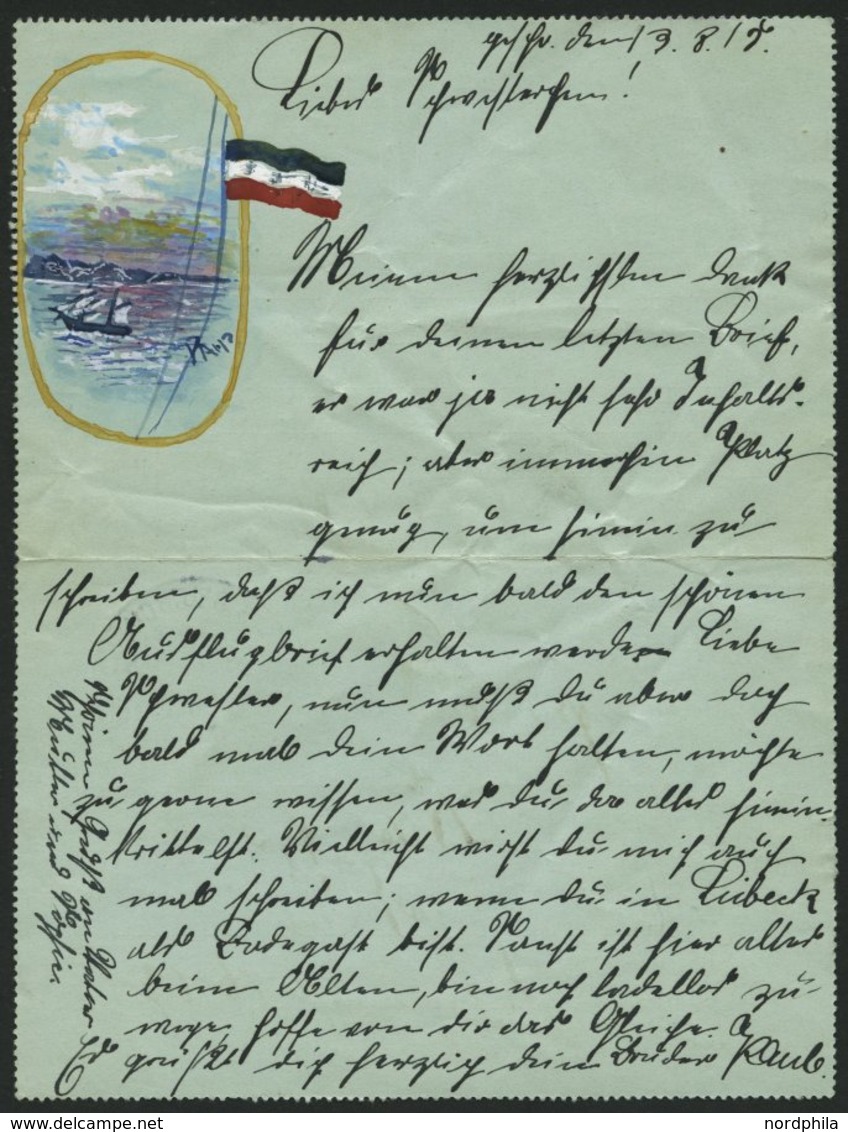 geschr. den 13.8.15.
Liebes Schwesterchen!
Meinen herzlichsten Dank
für deinen letzten Brief,
er war ja nicht sehr Inhalts-
reich; aber immerhin Platz
genug, um hinein zu
schreiben, daß ich nun bald den schönen
Ausflugbrief erhalten werde. Liebe
Schwester, nun mußt du aber doch
bald mal dein Wort halten, möchte
zu gerne wissen, was du da alles hinein-
kritzelst. Vielleicht wirst du mich auch
mal schreiben; wenn du in Lübeck
als Badegast bist. Sonst ist hier alles
beim Alten, bin noch tadellos zu-
wege, hoffe von dir das Gleiche.
Es grüßt dich herzlich dein Bruder Paul.
Gruß an Vater
Mutter und Sophie.
www.delcampe.net
nordphila